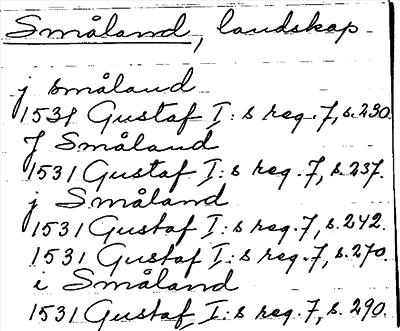 Småland, landskap
j småland
1531 Gustaf I:s reg. 7, s. 230.
J Småland
1531 Gustaf I:s reg. 7, s. 237.
j Småland
1531 Gustaf I:s reg. 7, s. 242.
1531 Gustaf I:s reg. 7, s. 270
i Småland
1531 Gustaf I:s reg. 7, s. 290.